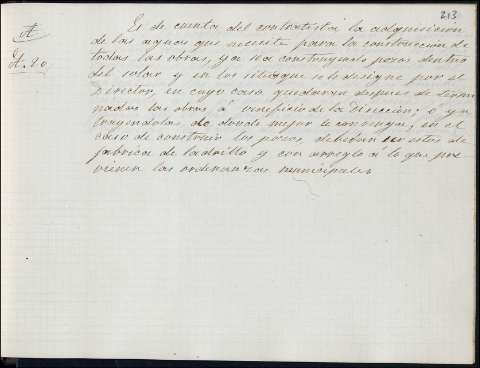 213
A
H. 20
Es de cuenta del contratista la adquisicion
de las aguas que necesite para la construccion de
todas las obras, ya sea construyendo pozos dentro
del solar y en los sitios que se le designe por el
Director, en cuyo caso quedaran despues de termi
nadas las obras á beneficio de la Direccion; ó ya
trayendolas de donde mejor le convenga; en el
caso de construir los pozos, deberán ser estos de
fabrica de ladrillo y con arreglo á lo que pre
vienen las ordenanzas municipales